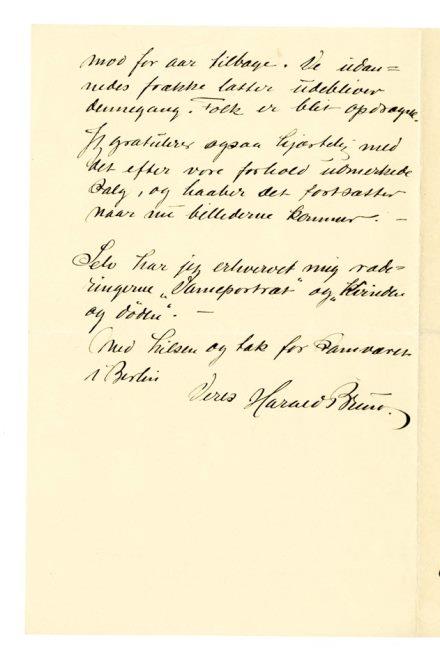 mod for aar tilbage. De udan=
nedes frække latter udebliver
dennegang. Folk er blit opdragne.
Jeg gratulerer ogsaa hjertelig med
det efter vore forhold udmerkede
salg, og haaber det fortsætter
naar nu billederne kommer. —
Selv har jeg erhvervet mig rade=
ringerne „Dameportræt“ og „Kvinden
og døden“. —
Med hilsen og tak for samværet
i Berlin
Deres Harald Bruun.